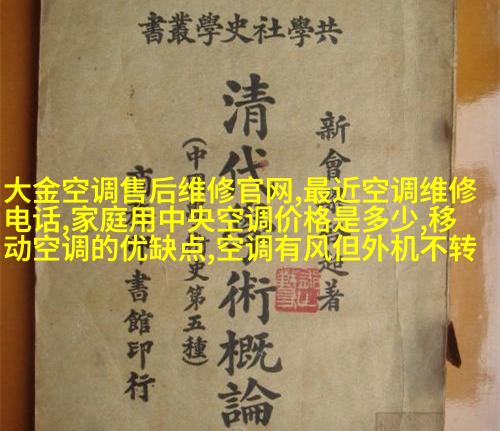 共學社史學叢書
新會 著
清代 術概論
(中 史第五種)
商 書館印行
大金空调售后维修官网,最近空调维修
电话,家庭用中央空调价格是多少,移
动空调的优缺点,空调有风但外机不转